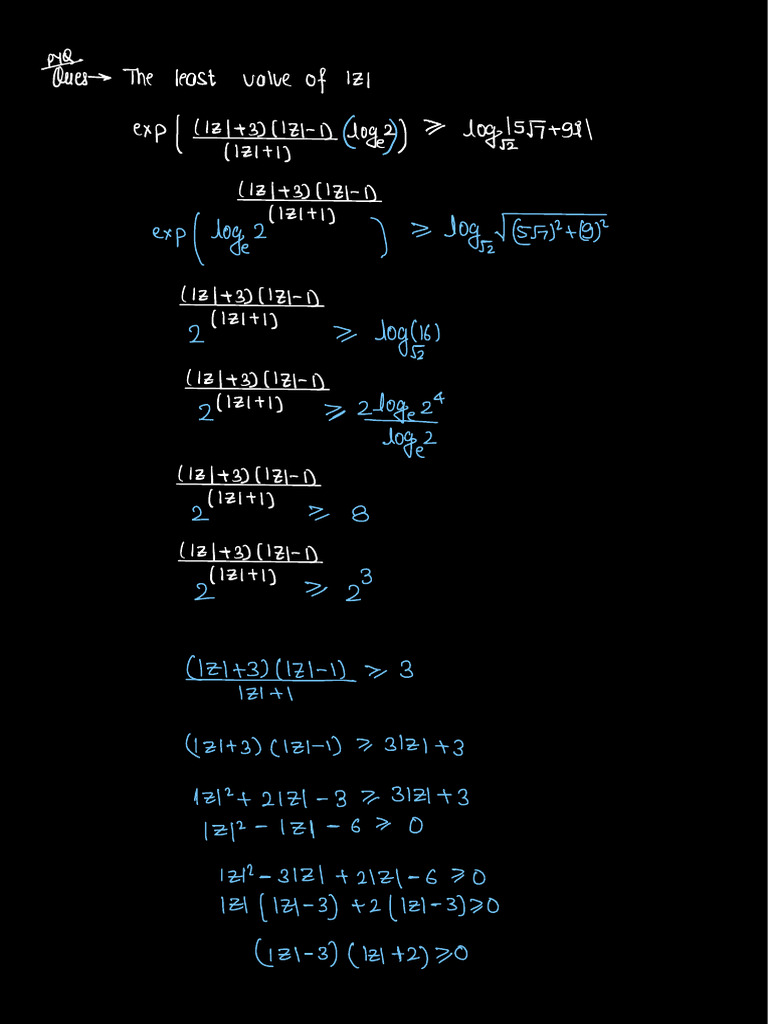 PYQ
Ques→ The least value of |z|
exp( (|z|+3)(|z|-1)/(|z|+1) (logₑ2) ) ⩾ log_√2 |5√7+9i|
exp( logₑ2^((|z|+3)(|z|-1)/(|z|+1)) ) ⩾ log_√2 √((5√7)²+(9)²)
2^((|z|+3)(|z|-1)/(|z|+1)) ⩾ log_√2(16)
2^((|z|+3)(|z|-1)/(|z|+1)) ⩾ 2logₑ2⁴/logₑ2
2^((|z|+3)(|z|-1)/(|z|+1)) ⩾ 8
2^((|z|+3)(|z|-1)/(|z|+1)) ⩾ 2³
(|z|+3)(|z|-1)/|z|+1 ⩾ 3
(|z|+3)(|z|-1) ⩾ 3|z|+3
|z|²+2|z|-3 ⩾ 3|z|+3
|z|²-|z|-6 ⩾ 0
|z|²-3|z|+2|z|-6 ⩾0
|z|(|z|-3)+2(|z|-3)⩾0
(|z|-3)(|z|+2)⩾0